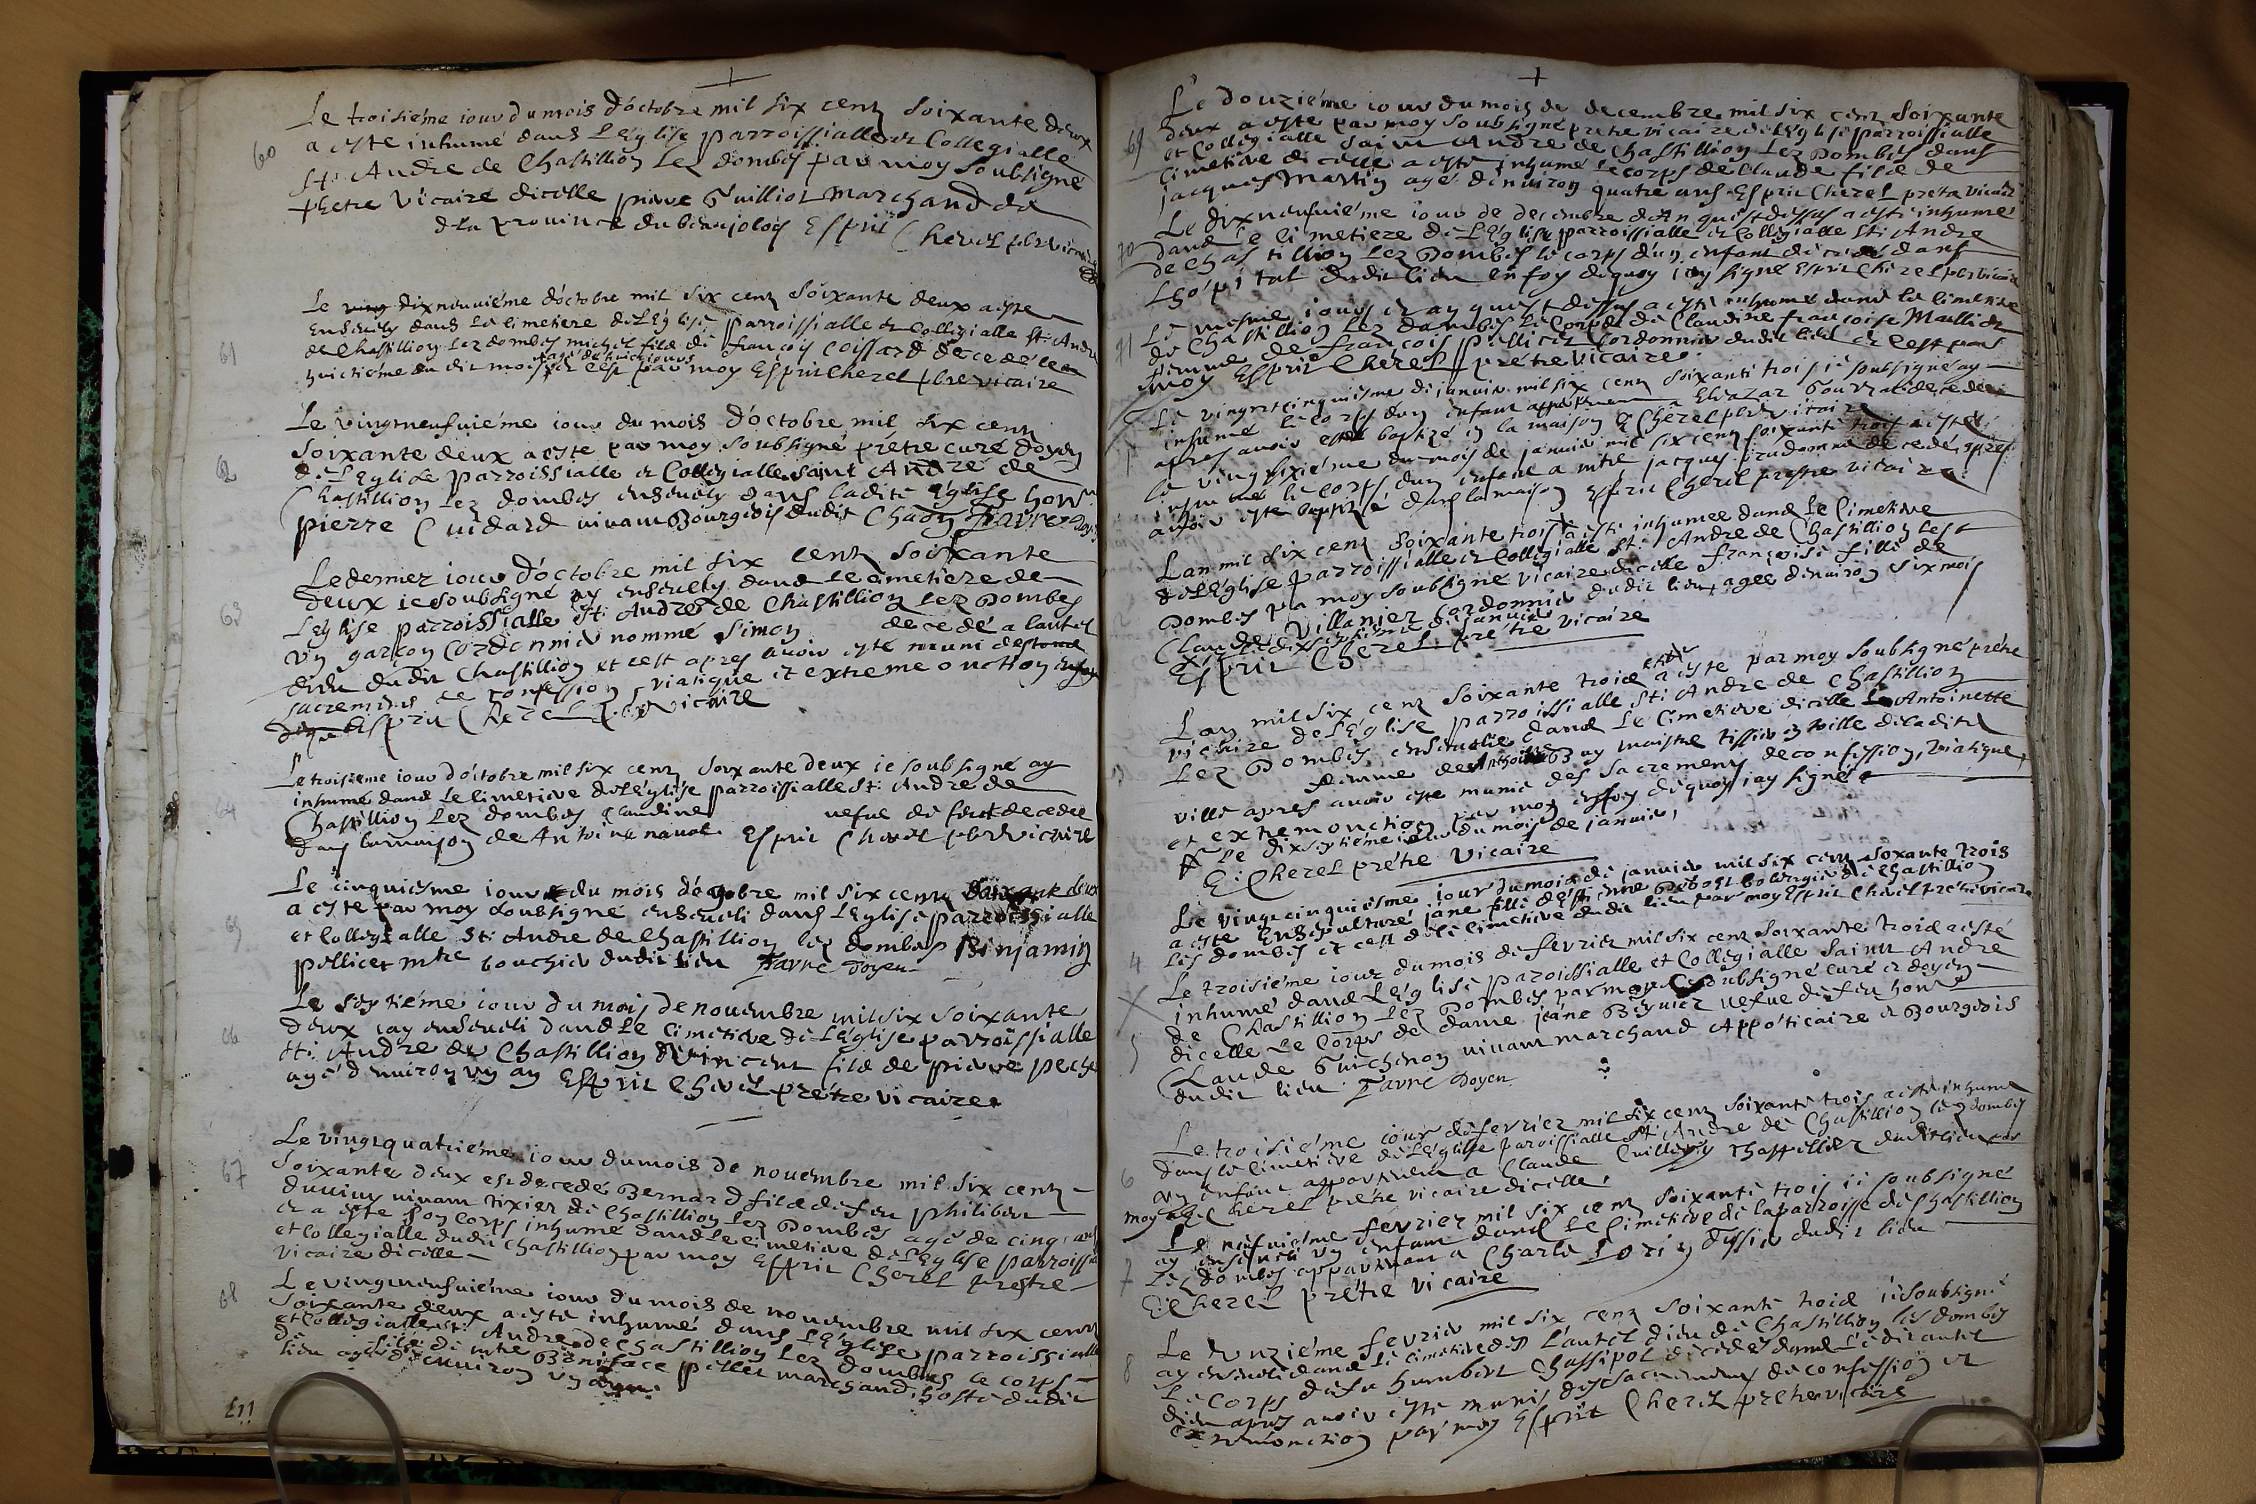 Le troisiéme iour du mois d'octobre mil six centz soixante deux
60
a esté inhumé dans L'église parroissialle et Collegialle
St: Andre de Chastillion Lez dombes par moy soubsigné
Vicaire dicelle pierre Guilliot Marchand de
de La province du beaujolois Esprit Cherel pbre vicaire
Le dixneuuiéme d'octobre mil six centz soixante deux a esté
61
enseuely dans Le cimetiere de L'église parroissialle et Collegialle St: Andre
de Chastillion Lez dombes michel filz de françois coissard decedé le
huictiéme du dit mois et c'est par moy Esprit Cherel pbre vicaire
Le vingtneufuiéme iour du mois d'octobre mil six centz
soixante deux a esté par moy soubsigné prétre curé doyen
62
de L'Eglise parroissialle et Collegialle saint Andre de
Chastillion Lez dombes enseuely dans ladite Eglise hon
pierre Cuidard viuant Bourgeois dudit Chaon favre doyen
Le dernier iour d'octobre mil six centz soixante
deux ie soubsigné ay enseuely dans Le cimetiere de
63
L'église parroissialle St: Andre de Chastillion Lez Dombes
vn garçon Cordonnier nommé Simon decedé a lautel
dieu dudit Chastillion et c'est apres auoir esté muni des
sacremens de confession, viatique et extreme onction
Esprit Cherel vicaire
Le troisieme iour d'octobre mil six centz soixante deux ie soubsigné ay
64
inhumé dans Le cimetiere de L'église parroissialle St: Andre de
Chastillion Lez dombes Claudine vefue de decedee
dans la maison de Antoine navot Esprit Cherel pbre vicaire
Le cinquiesme iour du mois d'octobre mil six centz soixante deux
65
a esté par moy soubsigné enseueli dans L'Eglise parroissialle
et Collegialle St: Andre de Chastillion lez dombes Binjamin
pellicer mtre bouchier dudit lieu favre doyen
Le septiéme iour du mois de nouembre mil six soixante
66
deux iay enseueli dans Le cimetiere de L'église parroissialle
St: Andre de Chastillion vincent filz de pierre peche
agé d'enuiron vn an Esprit Cherel prétre vicaire
Le vingtquatriéme iour du mois de nouembre mil six centz
67
soixante deux est decedé Bernard filz de feu philibert
viuant tixier de Chastillion Lez Dombes agé de cinq ans
et a esté son corps inhumé dans Le cimetiere de L'Eglise parroissialle
et Collegialle dudit Chastillion par moy Esprit Cherel prestre
vicaire dicelle
68
Le vingtneufuiéme iour du mois de nouembre mil six centz
soixante deux a esté inhumé dans L'Eglise parroissialle
et Collegialle St: Andre de Chastillion Lez dombes le corps
de filz de mtre Boniface pellet marchand hoste dudit
lieu agé d'enuiron vn an
Le douziéme iour du mois de decembre mil six centz soixante
69
deux a esté par moy soubsigné pretre vicaire de L'église parroissialle
et Collegialle saint Andre de Chastillion Lez Dombes dans
cimetiere dicelle a esté inhumé le corps de Claude filz de
jacques Martin agé denuiron quatre ans Esprit Cherel pretre vicaire
Le dixneufuiéme iour de decembre L'An que dessus a esté inhumé
70
dans le cimetiere de L'église parroissialle et Collegialle St: Andre
de Chastillion Lez Dombes le corps d'un enfant decedé dans
Lhopital dudit lieu en foy dequoy iay signé Esprit Cherel pbre vicaire
71
Le mesme iour et an que dessus a esté inhumé dans le cimetiere
de Chastillion Lez dombes Le Corps de Claudine françoise Maillet
femme de françois pellicer Cordonnier dudit lieu et c'est par
moy Esprit Cherel prétre vicaire
Le vingtcinquiesme de januier mil six centz soixante trois ie soubsigné ay
inhumé le corps d'un enfant a Eleazar decedé
apres auoir esté baptizé en la maison E Cherel pbre vicaire
Le vingtsixiéme du mois de januier mil six centz soixante trois a esté
inhumé le corps d'un enfant a mtre jacques prudomme decedé apres
auoir esté baptizé dans la maison Esprit Cherel prestre vicaire
Lan mil six centz soixante trois a esté inhumee dans Le Cimetiere
de L'église parroissialle et Collegialle St: Andre de Chastillion Lez
Dombes par moy soubsigné vicaire dicelle françoise fille de
Claude Villanier Cordonnier dudit lieu, agee denuiron six mois
Le dixseptiéme de januier
Esprit Cherel prétre vicaire
Lan mil six centz soixante trois a esté par moy soubsigné prétre
vicaire de L'Eglise parroissialle St: Andre de Chastillion
Lez Dombes enseuelie dans Le cimetiere dicelle Antoinette
femme de Anthoine Buy maistre tissier en toille de ladite
ville apres auoir esté munie des sacremens de confession, viatique,
et extremonction par moy en foy dequoy iay signé
Le dixseptiéme iour du mois de januier,
E: Cherel prétre vicaire
Le vingtcinquiésme iour du mois de januier mil six centz soxante trois
a esté Ensepulturé jane fille d'Estienne Debost bolengier de Chastillion
Les dombes et c'est dans le cimetiere dudit lieu par moy Esprit Cherel prétre vicaire
4
Le troisiéme iour du mois de feurier mil six centz soixante trois a esté
inhumé dans L'église paroissialle et Collegialle saint Andre
de Chastillion Lez Dombes par moy soubsigné curé et doyen
dicelle Le corps de dame jeane Béguier vefue de feu hon
5
Claude Guichenon viuant marchand Appoticaire et Bourgeois
dudit lieu favre doyen
Le troisiéme iour de feurier mil six centz soixante trois a esté inhumé
dans le cimetiere de L'église paroissialle St: Andre de Chastillion les dombes
6
vn enfant appartenant a Claude Cuillery Chappellier dudit lieu par
moy E Cherel prétre vicaire dicelle.
Le neufuiésme feurier mil six centz soixante trois ie soubsigné
ay enseueli vn enfant dans Le cimetiere de la parroisse de Chastillion
7
Lez dombes appartenant a Charle Lorin tissier dudit lieu
E: Cherel prétre vicaire
Le dunziéme feurier mil six centz soixante trois ie soubsigné
ay enseueli dans Le cimetiere de L'autel dieu de Chastillion les dombes
8
Le corps de feu humbert Chassipol decedé dans Ledit autel
dieu apres auoir esté muni des sacremens de confession et
extremonction par moy Esprit Cherel prétre vicaire